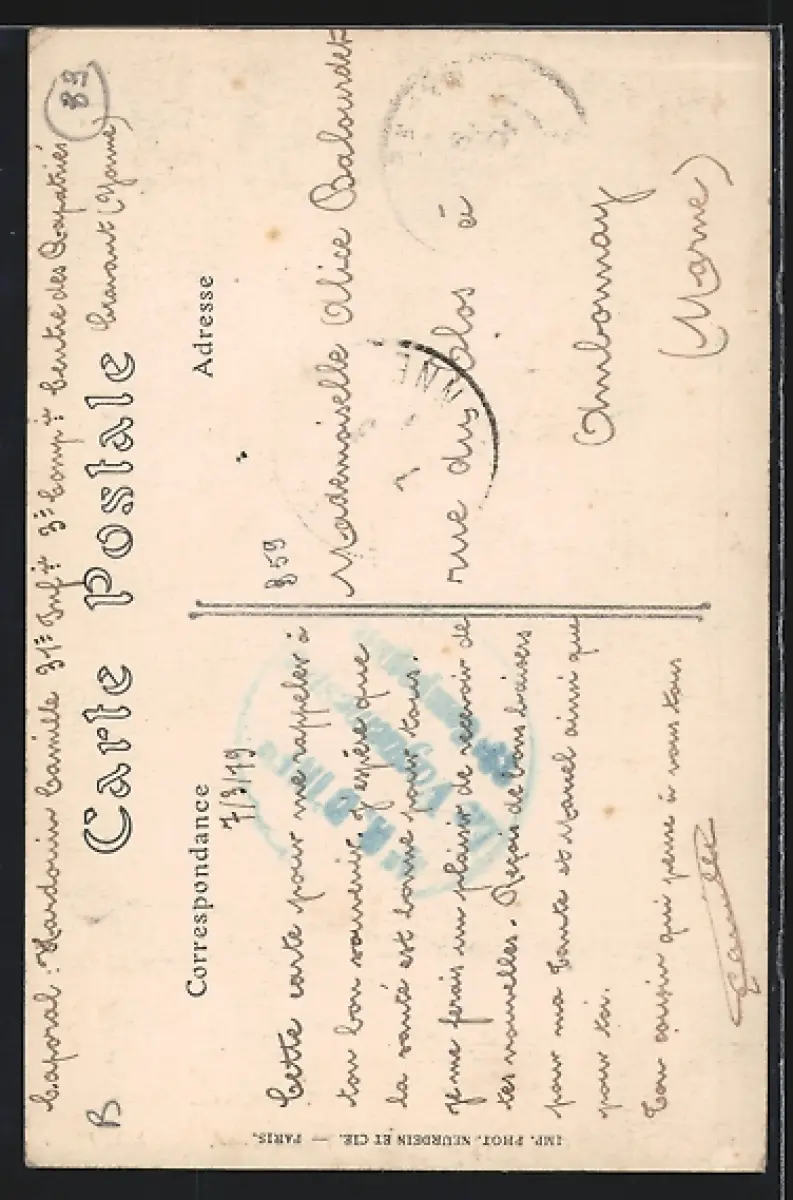 Caporal : Hardouin Camille 31e Infie 3e Compie Centre des Rapatriés
Cravant (Yonne)
83
B
Carte Postale
Correspondance
Adresse
7/3/19
Cette carte pour me rappeler à
ton bon souvenir. J'espère que
la santé est bonne pour tous.
Je me ferais un plaisir de recevoir de
tes nouvelles. Reçois de bons baisers
pour ma Tante et Marcel ainsi que
pour toi.
Ton cousin qui pense à vous tous
Camille
859
Mademoiselle Alice Balourdet
rue du Clos à
Ambonnay
(Marne)
IMP. PHOT. NEURDEIN ET CIE. — PARIS.